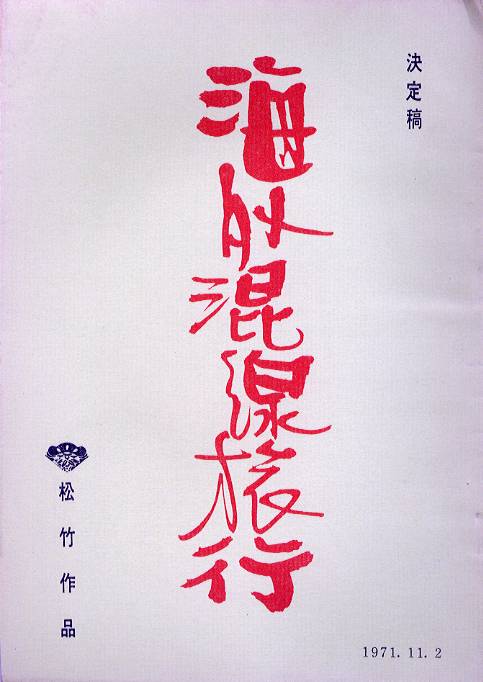 決定稿
海外混線旅行
松竹作品
1971. 11. 2